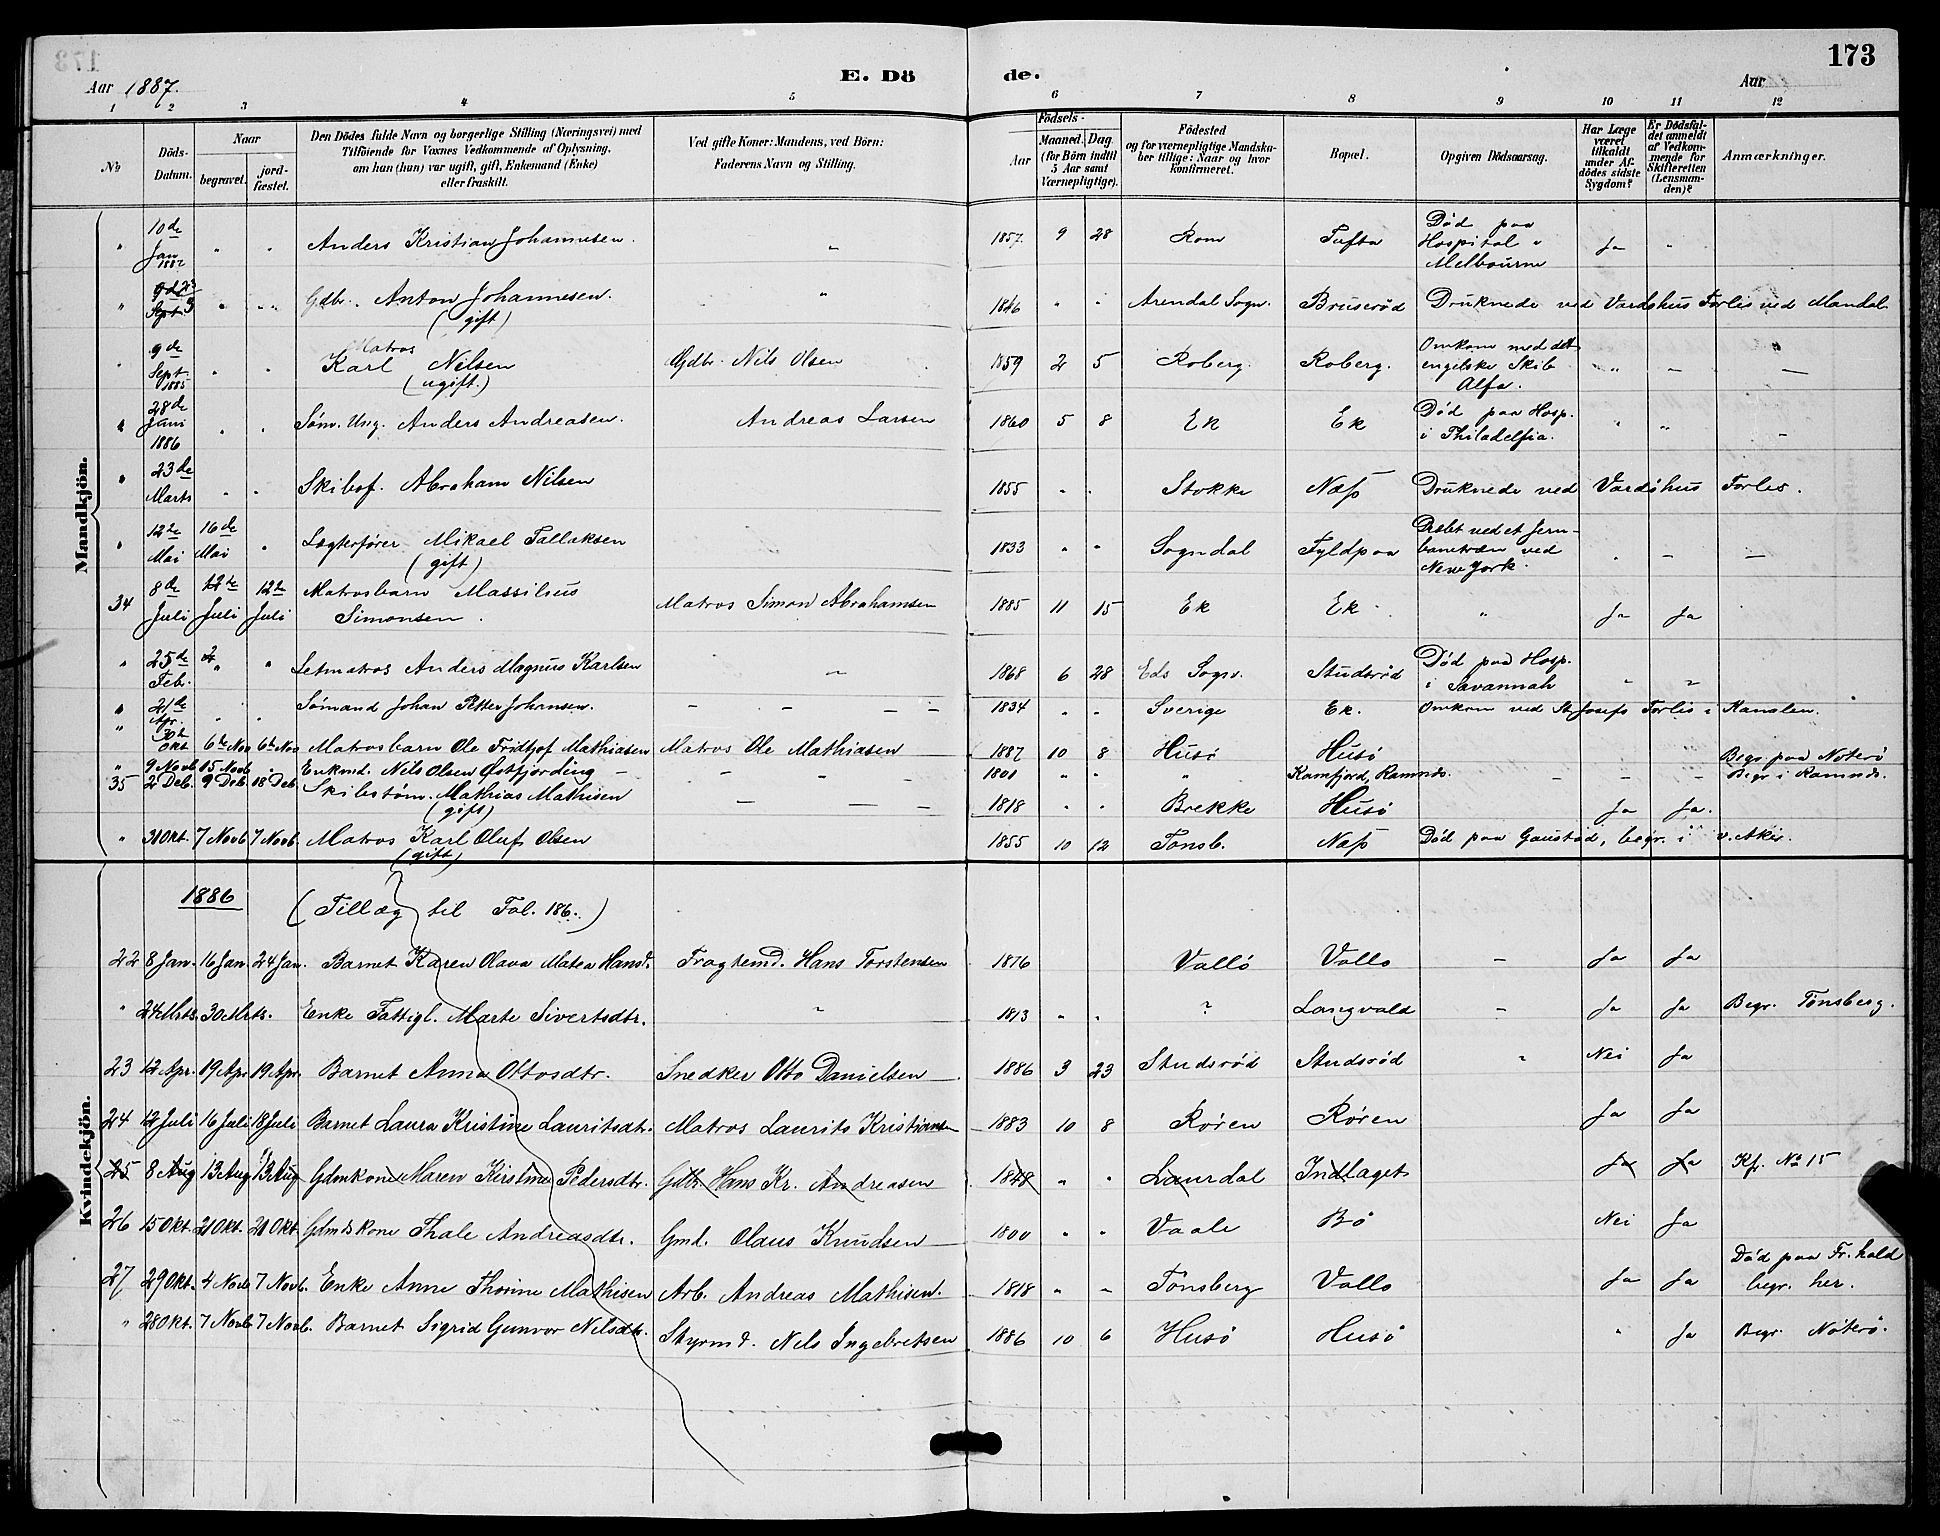 173
Aar 1887.
E. Dö
de.
Aar
1 2 3 4 5 6 7 8 9 10 11 12
№
Döds-Datum.
Naar
begravet.
jord-fæstet.
Den Dödes fulde Navn og borgerlige Stilling (Næringsvei) med
Tilföiende for Voxnes Vedkommende af Oplysning,
om han (hun) var ugift, gift, Enkemand (Enke)
eller fraskilt.
Ved gifte Koner: Mandens, ved Börn:
Faderens Navn og Stilling.
Födsels-
Aar
Maaned. Dag.
(for Börn indtil
5 Aar samt
Værnepligtige).
Födested
og for værnepligtige Mandska-
ber tillige: Naar og hvor
konfirmeret.
Bopæl.
Opgiven Dödsaarsag.
Har Læge
været
tilkaldt
under Af-
dödes sidste
Sygdom?
Er Dödsfal-
det anmeldt
af Vedkom-
mende for
Skifteretten
(Lensman-
den)?
Anmærkninger.
Mandkjön.
" 10de Jan 1887 " " Anders Kristian Johannesen. " 1857 9 28 Rom Tufta Død paa Hospital i Melbourne Ja "
" Sept. " " Gdbr. Anton Johannesen. (gift) " 1846 " " Arendal Sogn. Bruserød Druknede ved Vardøhus Forlis ved Mandal
" 9de Sept. 1885 " " Matros Karl Nilsen (ugift.) Gdbr. Nils Olsen 1859 2 5 Roberg. Roberg. Omkom med det engelske Skib Alfa. " — —
" 28de Juni 1886 " " Sønn. Ung. Anders Andreasen. Andreas Larsen 1860 5 8 Ek Ek Død paa Hosp. i Philadelfia. " " -
" 23de Marts " " Skibsf. Abraham Nilsen 1855 " " Stokke Næs Druknede ved Vardøhus Forlis.
" 12te Mai 16de Mai " Lægterfører Mikael Tallaksen (gift) 1833 " " Sogndal Fyldpaa Dræbt ved et Jernbanetræn ved New York. " — —
34 8de Juli 12te Juli 12te Juli Matrosbarn Massilius Simonsen. Matros Simon Abrahamsen 1885 11 15 Ek Ek " Ja Ja
" 25de Feb. " " Letmatros Anders Magnus Karlsen " 1868 6 28 Eds Sogn. Studsrød Død paa Hosp. i Savannah " "
" 21de Apr. " " Sømand Johan Petter Johansen. — — — — 1834 " " Sverige Ek. Omkom ved St. Josefs Forlis i Kanalen.
" 30te Okt 6te Nov 6te Nov Matrosbarn Ole Fridtjof Mathiasen Matros Ole Mathiasen 1887 10 8 Husø Husø Begr paa Nøterø
" 9 Novb 15 Novb " Enkmd. Nils Olsen Østfjording — — — — 1801 " " " Kamfjord, Ramnds. — — — Begr i Ramnds.
35 2 Deb. 9 Deb. 18 Deb. Skibstøm. Mathias Mathisen (gift) — — — 1818 " " Brekke Husø Ja Ja.
" 31 Okt. 7 Novb. 7 Novb. Matros Karl Oluf Olsen (gift) 1855 10 12 Tønsb. Næs Død paa Gaustad, begr. i v. Aker.
Kvindekjön.
1886 (Tillæg til Fol. 186.)
22 8 Jan. 16 Jan. 24 Jan. Barnet Karen Olava Matea Hansd. Fragtemd. Hans Torstensen 1876 Vallø Vallø - Ja Ja
" 24 Mrts. 30 Mrts. Enke Fattigl. Marte Sivertsdtr. " 1813 " " ? Langvald - Ja Ja Begr. Tønsberg.
23 12 Apr. 19 Apr. 19 Apr. Barnet Anna Ottosdtr. Snedker Otto Danielsen 1886 3 23 Studsrød Studsrød " Nei Ja
24 12 Juli 16 Juli 18 Juli Barnet Laura Kristine Lauritsdtr. Matros Laurits Kristiansen 1883 10 8 Røren Røren Ja Ja
25 8 Aug 13 Aug 13 Aug Gdmkone Maren Kirstine Pedersdtr. Gdbr. Hans Kr. Andreasen 1848 " " Laurdal Indlaget Ja Ja Kf. No 15
26 15 Okt. 21 Okt. 21 Okt. Gdmdskone Thale Andreasdtr. Gmd. Olaus Knudsen 1800 " " Vaale Bø Nei Ja
27 29 Okt. 4 Novb 7 Novb. Enke Anne Thorine Mathisen Arb. Andreas Mathisen. 1818 " " Tønsberg Vallø Ja Ja Død paa Fr.hald begr. her.
" 28 Okt. 7 Novb 7 Novb. Barnet Sigrid Gunvor Nilsdtr. Styrmd. Nils Ingebretsen 1886 10 6 Husø Husø " Ja Begr. Nøterø.